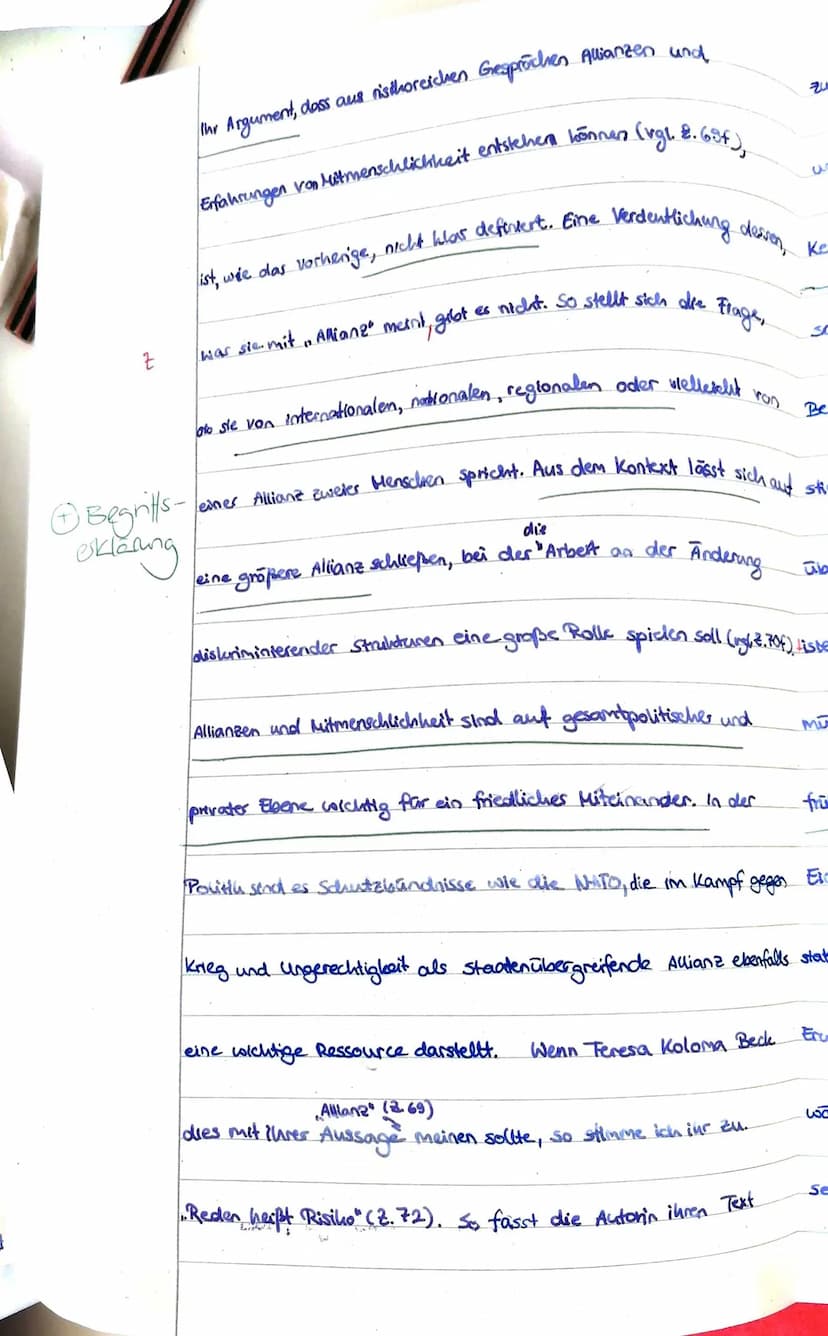 Ihr Argument, dass aus risikoreichen Gesprächen Allianzen und
zu
Erfahrungen von Mitmenschlichkeit entstehen können (vgl. Z. 69f),
ist, wie das vorherige, nicht klar definiert. Eine Verdeutlichung dessen,
Ke
was sie mit „Allianz" meint, gibt es nicht. So stellt sich die Frage,
Z
ob sie von internationalen, nationalen, regionalen oder vielleicht von
Be
einer Allianz zweier Menschen spricht. Aus dem Kontext lässt sich auf
sti
+ Begriffs-
erklärung
die
eine größere Allianz schließen, bei der Arbeit an der Änderung
üb
diskriminierender Strukturen eine große Rolle spielen soll (vgl. Z. 70f)
iste
Allianzen und Mitmenschlichkeit sind auf gesamtpolitischer und
mü
privater Ebene wichtig für ein friedliches Miteinander. In der
frü
Politik sind es Schutzbündnisse wie die NATO, die im Kampf gegen
Ei
Krieg und Ungerechtigkeit als staatenübergreifende Allianz ebenfalls
stat
eine wichtige Ressource darstellt. Wenn Teresa Koloma Beck
„Allianz" (Z. 69)
dies mit ihrer Aussage meinen sollte, so stimme ich ihr zu.
„Reden heißt Risiko" (Z. 72). So fasst die Autorin ihren Text
se